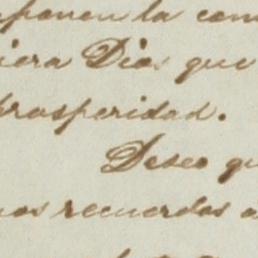 mponen la com
iera Dios que
prosperidad.
Deseo qu
nos recuerdos a